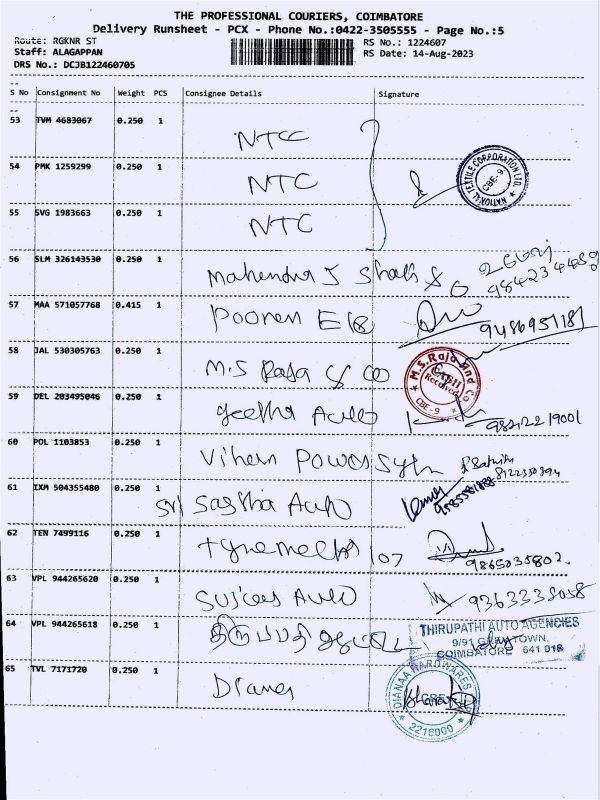 THE PROFESSIONAL COURIERS, COIMBATORE
Delivery Runsheet - PCX - Phone No.:0422-3505555 - Page No.:5
Route: RGKNR ST
RS No.: 1224607
Staff: ALAGAPPAN
RS Date: 14-Aug-2023
DRS No.: DCJB122460705
S No Consignment No Weight PCS Consignee Details Signature
53 TVM 4683067 0.250 1 NTCC
54 PMK 1259299 0.250 1 NTC
NATIONAL TEXTILE CORPORATION LTD. CBE-9
55 SVG 1983663 0.250 1 NTC
56 SLM 326143530 0.250 1 Mahendra J Shah &
57 MAA 571057768 0.415 1 Pooren 9486951181
58 JAL 530305763 0.250 1 M.S Raja & Co
M.S.Raja and Co Received CBE-9
59 DEL 203495046 0.250 1 Geetha Auto 9842219001
60 POL 1103853 0.250 1 Power 8122350394
61 IXM 504355480 0.250 1 Sri Sastha Auto
62 TEN 7499116 0.250 1 107 9865035802
63 VPL 944265620 0.250 1 Auto 9363338058
64 VPL 944265618 0.250 1 திருப்பதி
THIRUPATHI AUTO AGENCIES
9/91 TOWN,
COIMBATORE 641 018
65 TVL 7171720 0.250 1 Diana
DIANAA HARDWARES CBE 2216000